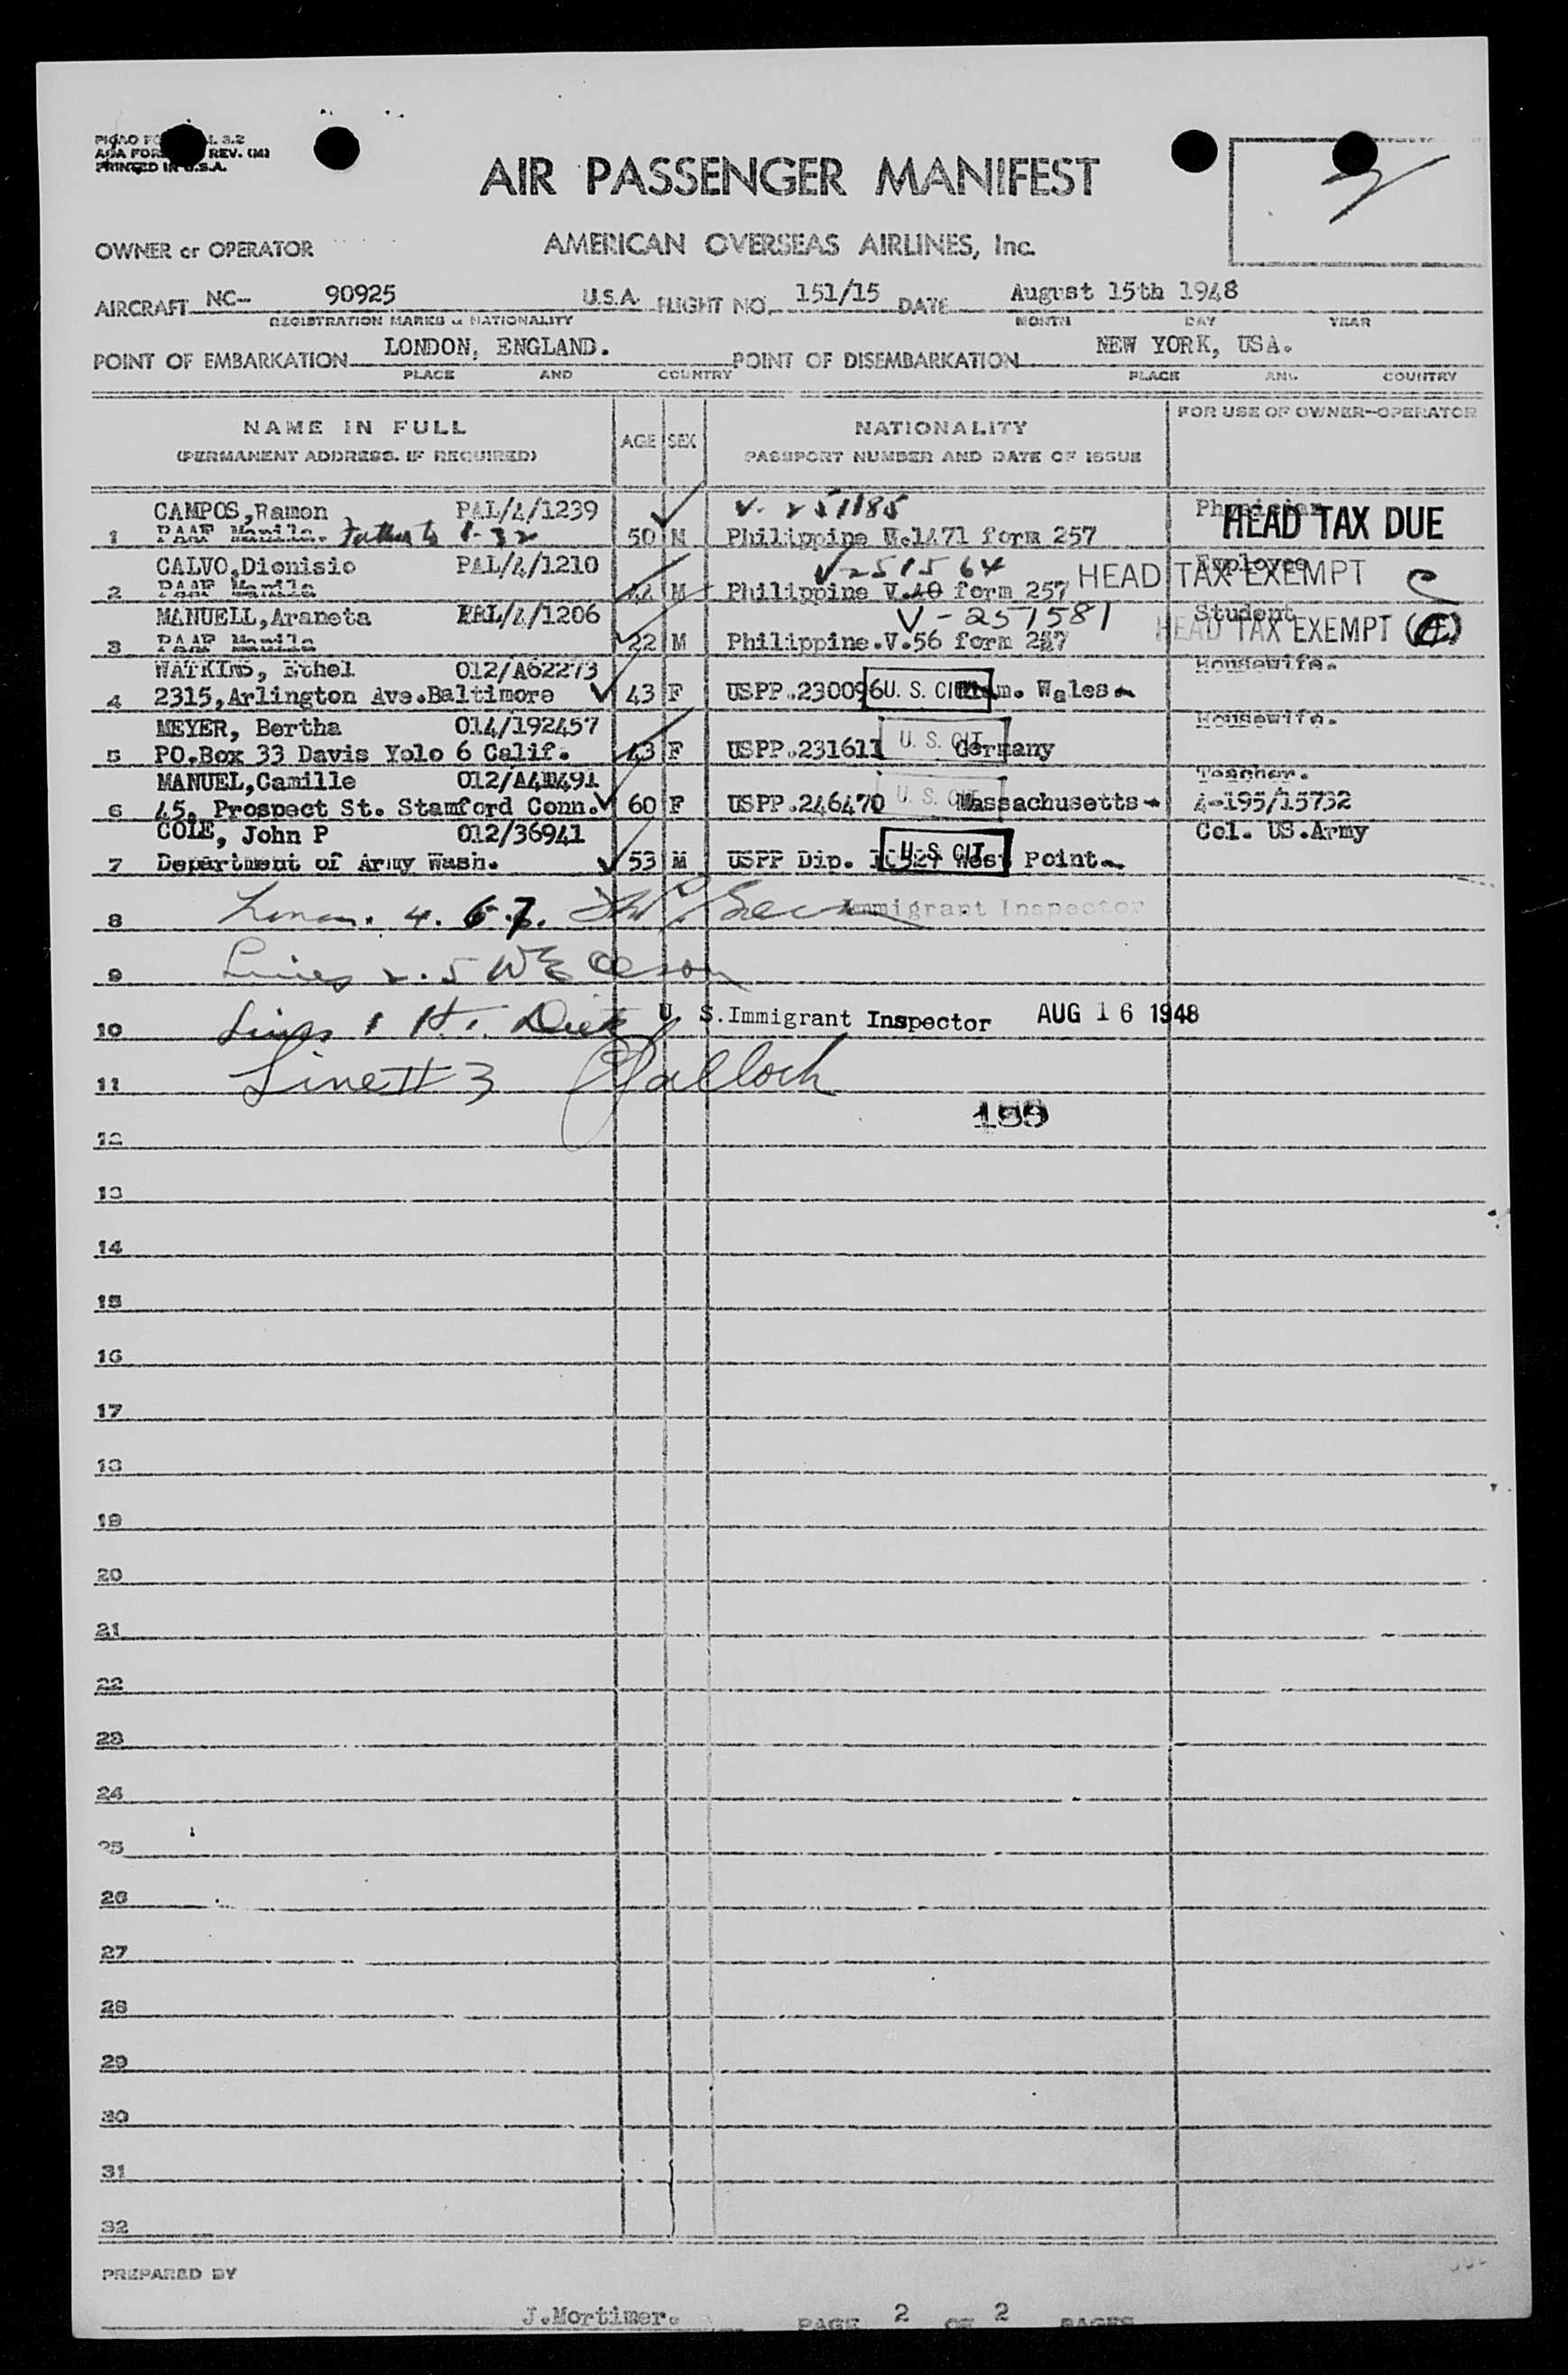 AIR PASSENGER MANIFEST
OWNER or OPERATOR
AMERICAN OVERSEAS AIRLINES, Inc.
AIRCRAFT NC- 90925 U.S.A. FLIGHT NO. 151/15 DATE August 15th 1948
REGISTRATION MARKS & NATIONALITY MONTH DAY YEAR
POINT OF EMBARKATION LONDON, ENGLAND. POINT OF DISEMBARKATION NEW YORK, USA.
PLACE AND COUNTRY PLACE AND COUNTRY
NAME IN FULL AGE SEX NATIONALITY FOR USE OF OWNER-OPERATOR
(PERMANENT ADDRESS. IF REQUIRED) PASSPORT NUMBER AND DATE OF ISSUE
CAMPOS,Ramon PAL/4/1239 V. 251185 Physician
1 PAAF Manila. 50 M Philippine form 257 HEAD TAX DUE
CALVO,Dionisio PAL/4/1210 V251564 Employee
2 PAAF Manila M Philippine form 257 HEAD TAX EXEMPT
MANUELL,Araneta PAL/4/1206 V-251581 Student
3 PAAF Manila 22 M Philippine.V.56 form 257 HEAD TAX EXEMPT
WATKINS, Ethel 012/A62273 Housewife.
4 2315,Arlington Ave.Baltimore 43 F USPP.230096 U. S. CIT. Wales
MEYER, Bertha 014/192457 Housewife.
5 PO.Box 33 Davis Yolo 6 Calif. 43 F USPP.231611 U. S. CIT. Germany
MANUEL,Camille Teacher.
6 45, Prospect St. Stamford Conn. 60 F USPP.246470 U. S. CIT. Massachusetts 4-195/15732
COLE, John P 012/36941 Col. US.Army
7 Department of Army Wash. 53 M USPP Dip. U. S. CIT. West Point
8 4. 6.7. Immigrant Inspector
9 Lines 2.5
10 Lines 1 U. S.Immigrant Inspector AUG 16 1948
11 Line # 3
12
13
14
15
16
17
18
19
20
21
22
23
24
25
26
27
28
29
30
31
32
PREPARED BY
J.Mortimer. PAGE 2 OF 2 PAGES